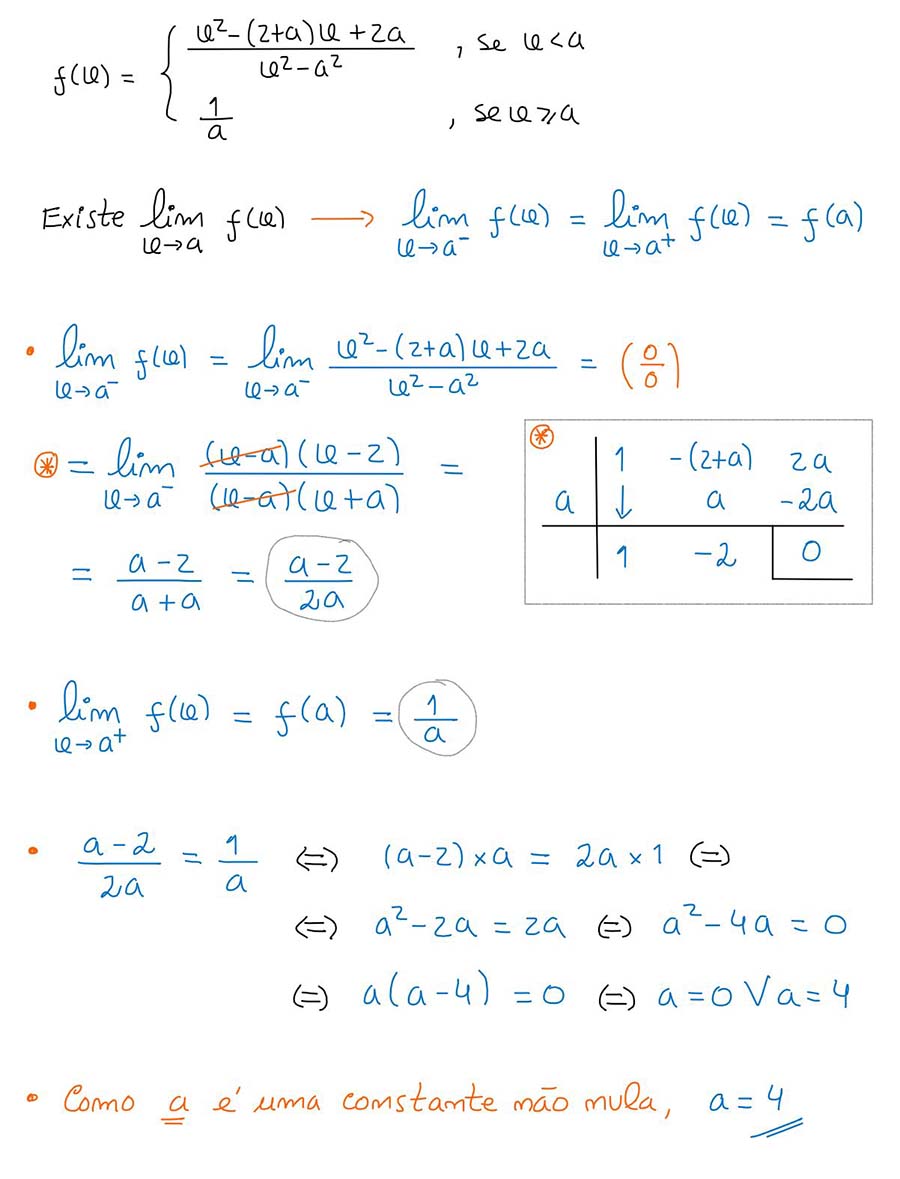 f(x) = { x² - (2+a)x + 2a / x² - a² , se x < a
1/a , se x ⩾ a
Existe lim x→a f(x) → lim x→a⁻ f(x) = lim x→a⁺ f(x) = f(a)
• lim x→a⁻ f(x) = lim x→a⁻ x² - (2+a)x + 2a / x² - a² = (0/0)
⊛ = lim x→a⁻ (x-a)(x-2) / (x-a)(x+a) =
= a-2 / a+a = a-2 / 2a
⊛
1 -(2+a) 2a
a ↓ a -2a
1 -2 0
• lim x→a⁺ f(x) = f(a) = 1/a
• a-2 / 2a = 1/a (=) (a-2)×a = 2a×1 (=)
(=) a² - 2a = 2a (=) a² - 4a = 0
(=) a(a-4) = 0 (=) a = 0 ∨ a = 4
• Como a é uma constante não nula, a = 4